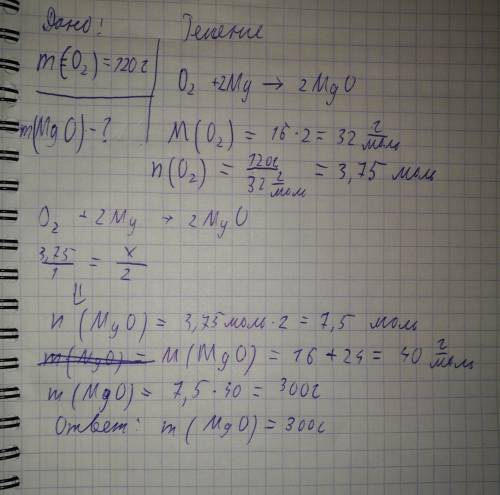 Дано: Решение
m(O₂) = 120г
m(MgO) - ?
O₂ + 2Mg → 2MgO
M(O₂) = 16·2 = 32 г/моль
n(O₂) = 120г / 32 г/моль = 3,75 моль
O₂ + 2Mg → 2MgO
3,75/1 = x/2
⇓
n(MgO) = 3,75 моль·2 = 7,5 моль
m(MgO) = M(MgO) = 16 + 24 = 40 г/моль
m(MgO) = 7,5·40 = 300г
Ответ: m(MgO) = 300г